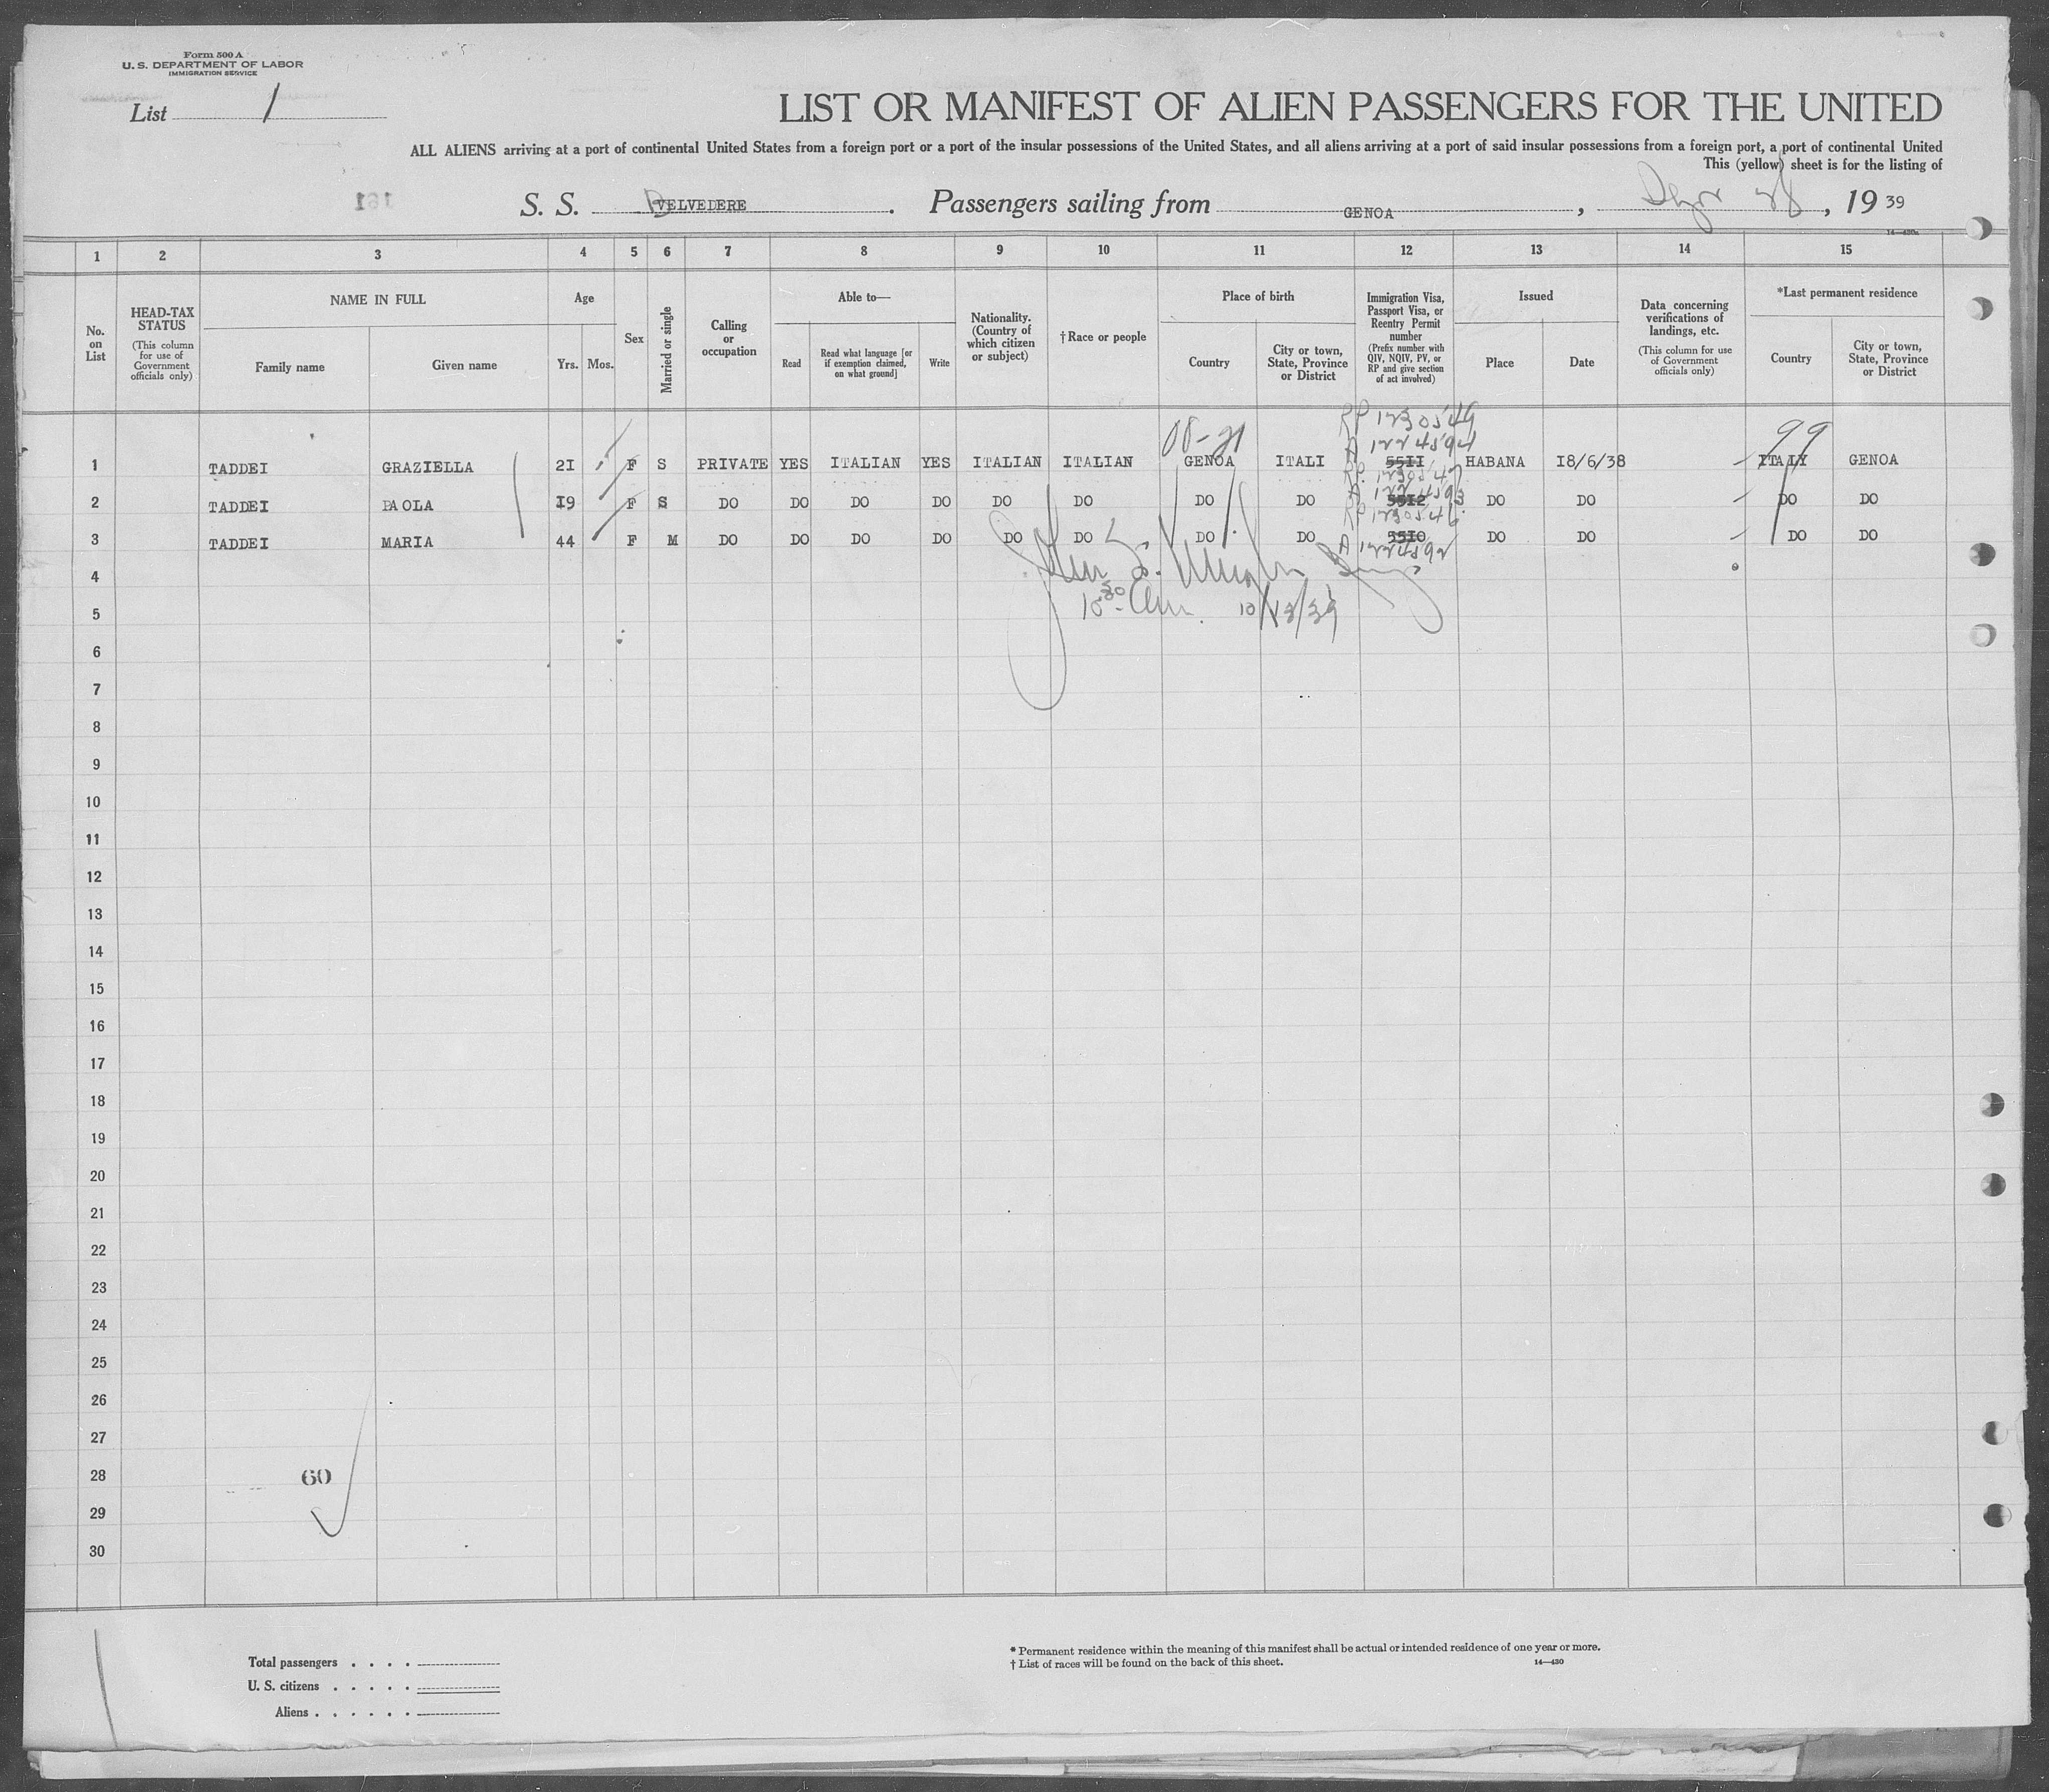 Form 500 A
U. S. DEPARTMENT OF LABOR
IMMIGRATION SERVICE
List 1
LIST OR MANIFEST OF ALIEN PASSENGERS FOR THE UNITED
ALL ALIENS arriving at a port of continental United States from a foreign port or a port of the insular possessions of the United States, and all aliens arriving at a port of said insular possessions from a foreign port, a port of continental United
This (yellow) sheet is for the listing of
161
S. S. BELVEDERE . Passengers sailing from GENOA , 28 , 19 39
14—430a
1 2 3 4 5 6 7 8 9 10 11 12 13 14 15
No. on List
HEAD-TAX STATUS (This column for use of Government officials only)
NAME IN FULL
Family name Given name
Age
Yrs. Mos.
Sex
Married or single
Calling or occupation
Able to—
Read Read what language [or if exemption claimed, on what ground] Write
Nationality. (Country of which citizen or subject)
† Race or people
Place of birth
Country City or town, State, Province or District
Immigration Visa, Passport Visa, or Reentry Permit number (Prefix number with QIV, NQIV, PV, or RP and give section of act involved)
Issued
Place Date
Data concerning verifications of landings, etc. (This column for use of Government officials only)
*Last permanent residence
Country City or town, State, Province or District
RP 1230549
A 1224594
99
1 TADDEI GRAZIELLA 21 F S PRIVATE YES ITALIAN YES ITALIAN ITALIAN GENOA ITALI 55II HABANA I8/6/38 ITALY GENOA
RP 1230547
A 1224593
2 TADDEI PAOLA I9 F S DO DO DO DO DO DO DO DO 55I2 DO DO DO DO
3 TADDEI MARIA 44 F M DO DO DO DO DO DO DO DO 55I0 DO DO DO DO
A 1224592
4
10 30 am. 10/13/39
5
6
7
8
9
10
11
12
13
14
15
16
17
18
19
20
21
22
23
24
25
26
27
28 60
29
30
Total passengers . . . .
U. S. citizens . . . . .
Aliens . . . . . .
* Permanent residence within the meaning of this manifest shall be actual or intended residence of one year or more.
† List of races will be found on the back of this sheet. 14—430